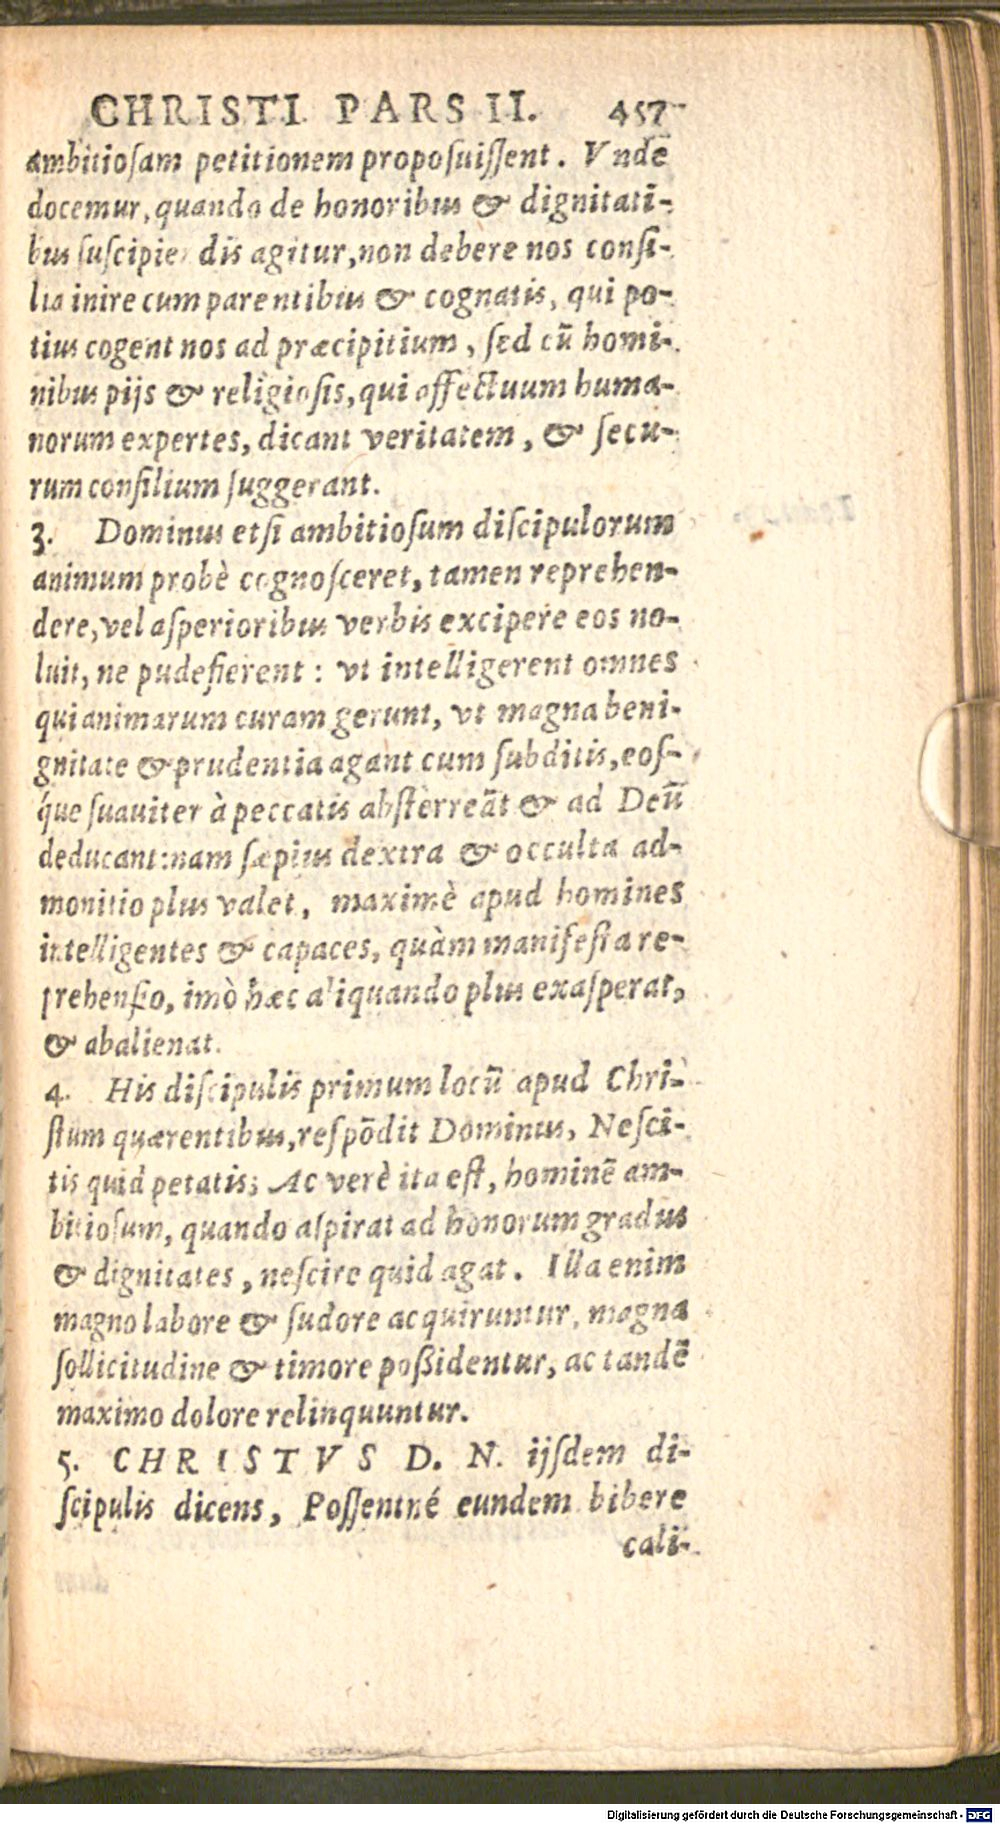 CHRISTI PARS II. 457
ambitioſam petitionem propoſuiſſent. Vndē
docemur, quando de honoribus & dignitati-
bus ſuſcipiendis agitur, non debere nos conſi-
lia inire cum parentibus & cognatis, qui po-
tius cogent nos ad præcipitium, ſed cū homi-
nibus pijs & religioſis, qui affectuum huma-
norum expertes, dicant veritatem, & ſecu-
rum conſilium ſuggerant.
3. Dominus etſi ambitioſum diſcipulorum
animum probè cognoſceret, tamen reprehen-
dere, vel aſperioribus verbis excipere eos no-
luit, ne pudefierent: vt intelligerent omnes
qui animarum curam gerunt, vt magna beni-
gnitate & prudentia agant cum ſubditis, eoſ-
que ſuauiter à peccatis abſterreāt & ad Deū
deducant: nam ſæpius dextra & occulta ad-
monitio plus valet, maximè apud homines
intelligentes & capaces, quàm manifeſta re-
prehenſio, imò hæc aliquando plus exaſperat,
& abalienat.
4. His diſcipulis primum locū apud Chri-
ſtum quærentibus, reſpōdit Dominus, Neſci-
tis quid petatis; Ac verè ita eſt, hominē am-
bitioſum, quando aſpirat ad honorum gradus
& dignitates, neſcire quid agat. Illa enim
magno labore & ſudore acquiruntur, magna
ſollicitudine & timore poßidentur, ac tandē
maximo dolore relinquuntur.
5. CHRISTVS D. N. ijſdem di-
ſcipulis dicens, Poſſentné eundem bibere
cali-
Digitalisierung gefördert durch die Deutsche Forschungsgemeinschaft - DFG